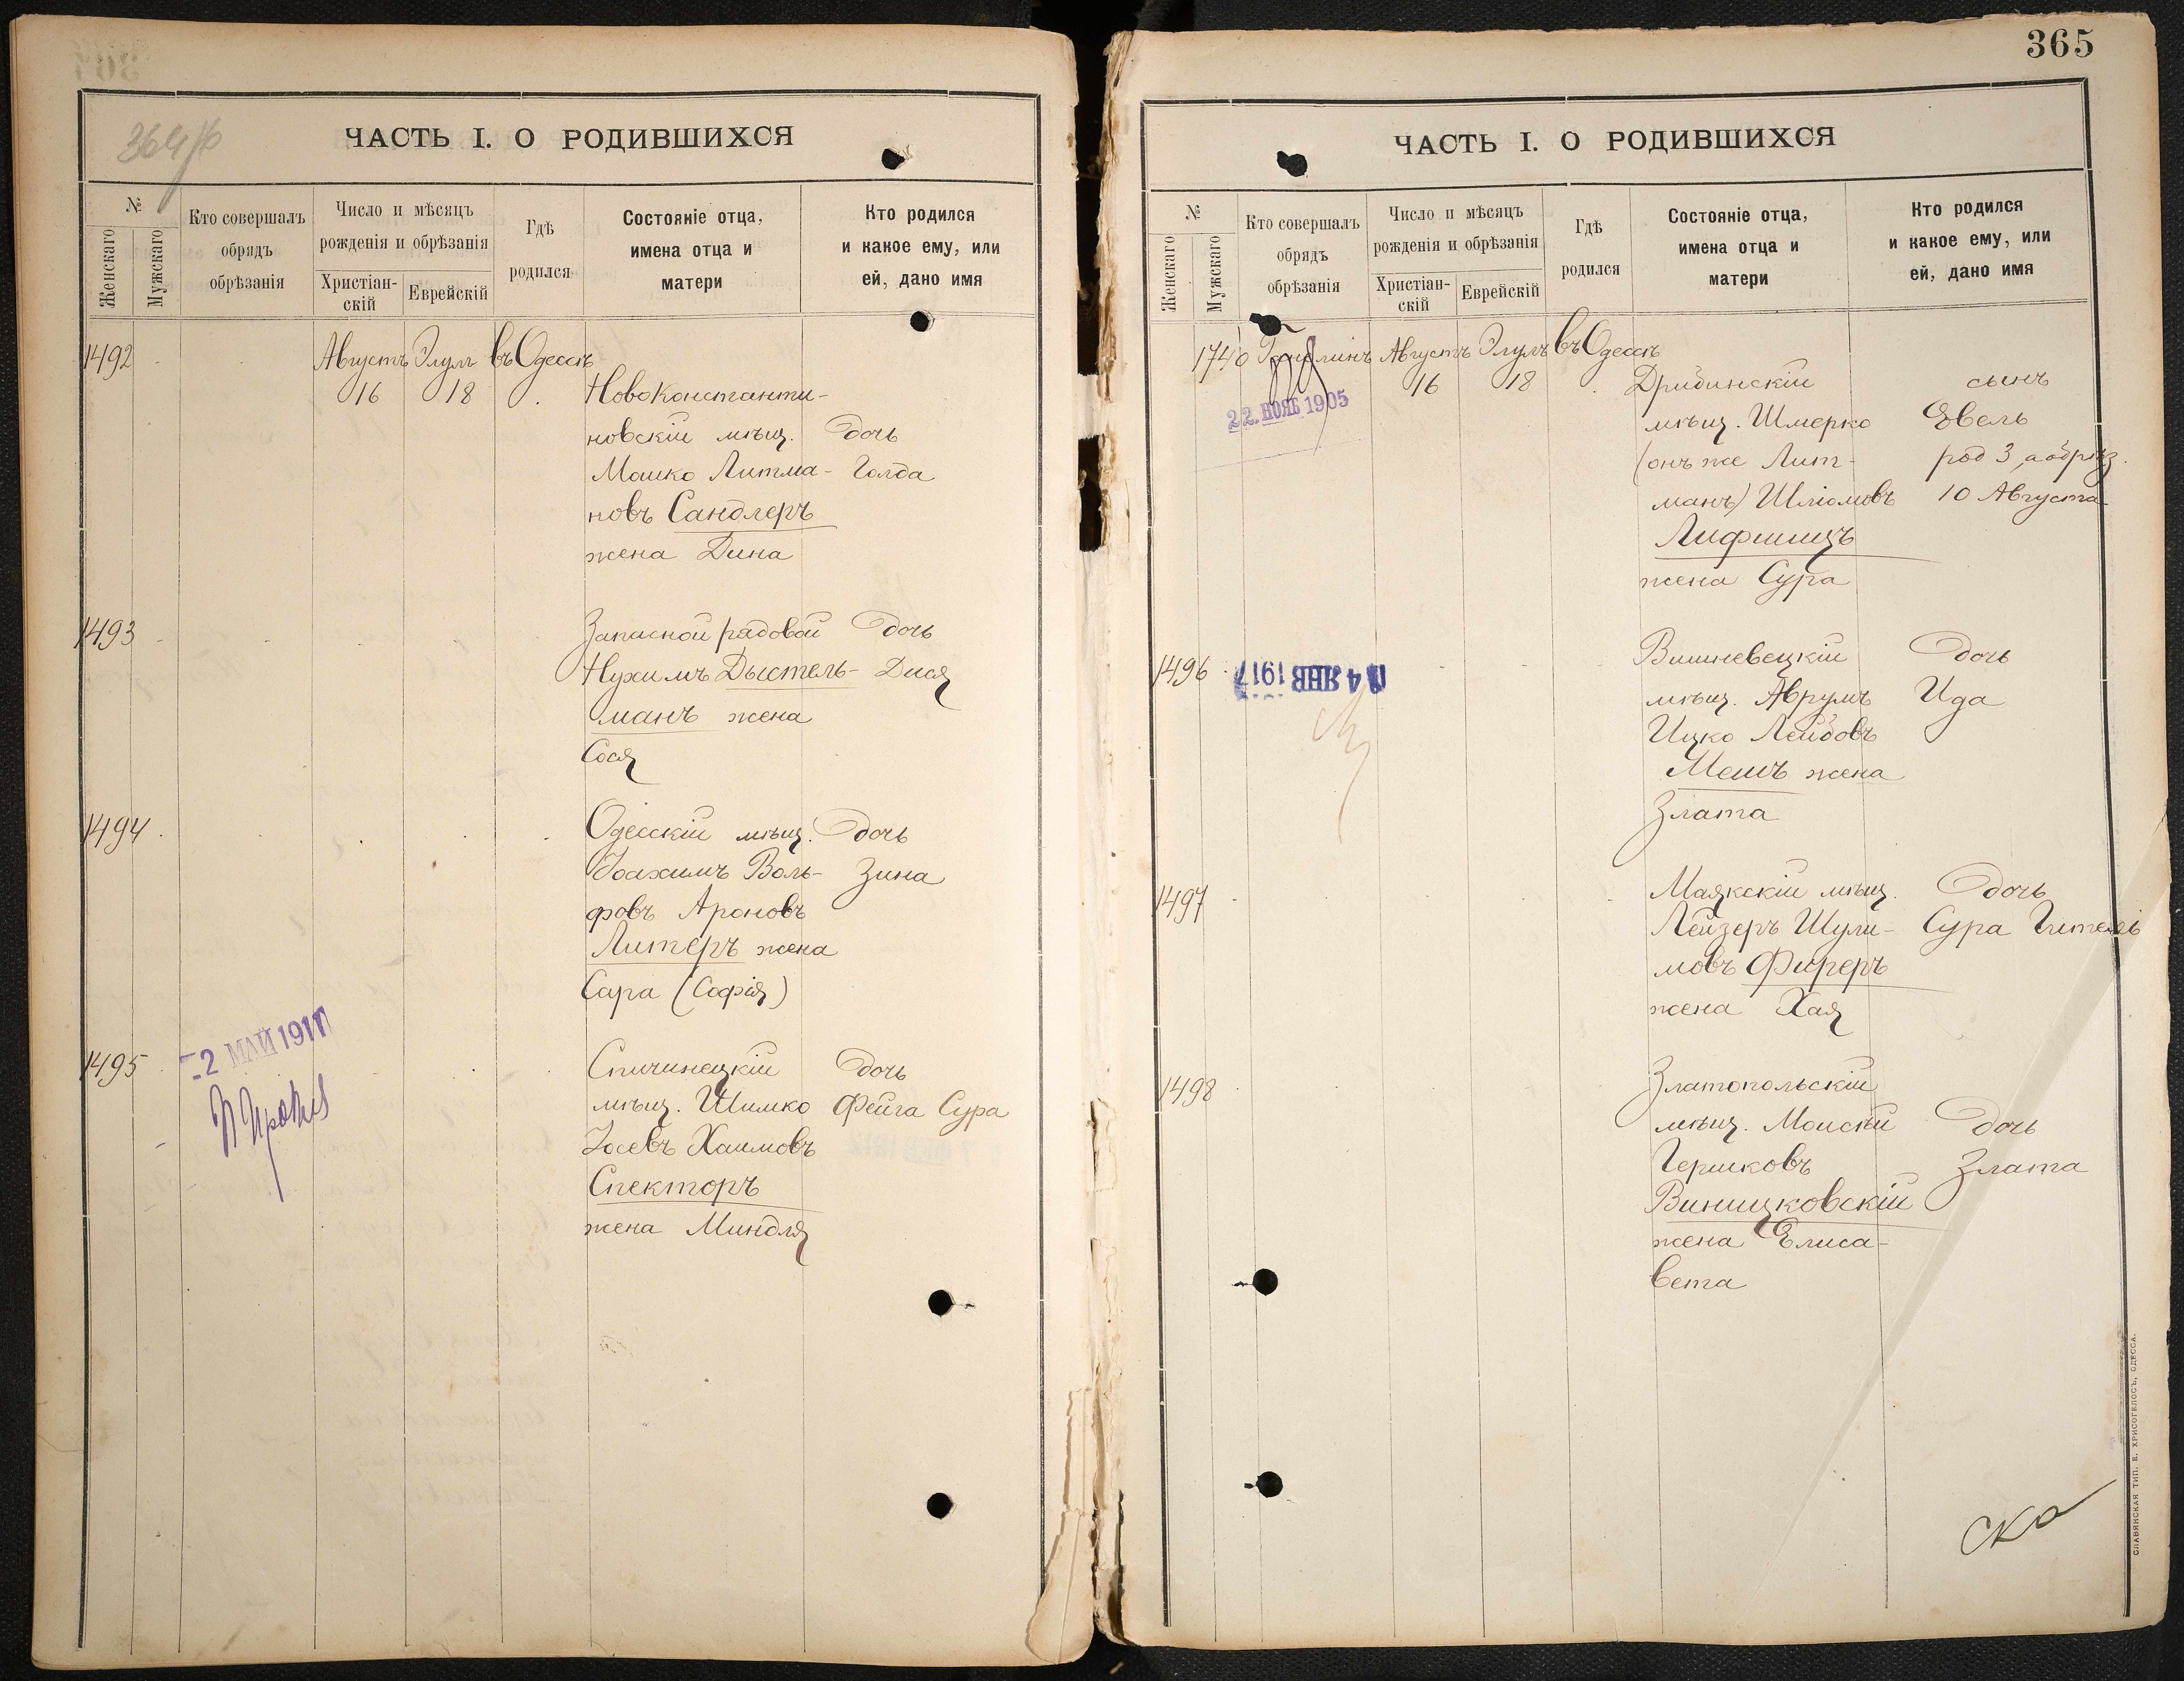 364 об
ЧАСТЬ I. О РОДИВШИХСЯ
№
Женскаго
Мужскаго
Кто совершалъ
обрядъ
обрѣзанія
Число и мѣсяцъ
рожденія и обрѣзанія
Христіан-
скій
Еврейскій
Гдѣ
родился
Состояніе отца,
имена отца и
матери
Кто родился
и какое ему, или
ей, дано имя
1492
Августъ Элулъ въ Одессѣ
16 18
Новоконстанти-
новскій мѣщ. дочь
Мошко Литма- Голда
новъ Сандлеръ
жена Дина
1493
Запасной рядовой дочь
Нухимъ Дыстель- Дися
манъ жена
Сося
1494
Одесскій мѣщ. дочь
Іоахимъ Воль- Зина
фовъ Ароновъ
Литеръ жена
Сара (Софія)
1495
-2 МАЙ 1911
Спичинецкій дочь
мѣщ. Шимко Фейга Сура
Іосевъ Хаимовъ
Спекторъ
жена Миндля
365
ЧАСТЬ I. О РОДИВШИХСЯ
№
Женскаго
Мужскаго
Кто совершалъ
обрядъ
обрѣзанія
Число и мѣсяцъ
рожденія и обрѣзанія
Христіан-
скій
Еврейскій
Гдѣ
родился
Состояніе отца,
имена отца и
матери
Кто родился
и какое ему, или
ей, дано имя
1740 Августъ Элулъ въ Одессѣ
16 18
22. НОЯБ 1905
Дрибинскій сынъ
мѣщ. Шмерко Евель
(онъ же Лит- род 3, а обрѣз.
манъ) Шліомовъ 10 Августа
Лифшицъ
жена Сура
1496
14 ЯНВ 1917
Вишневецкій дочь
мѣщ. Аврумъ Ида
Ицко Лейбовъ
Мешъ жена
Злата
1497
Маякскій мѣщ. дочь
Лейзеръ Шули- Сура Гитель
мовъ Фиреръ
жена Хая
1498
Златопольскій
мѣщ. Моисѣй дочь
Гершковъ Злата
Виницковскій
жена Елиса-
вета
СЛАВЯНСКАЯ ТИП. Е. ХРИСОГЕЛОСЪ, ОДЕССА.